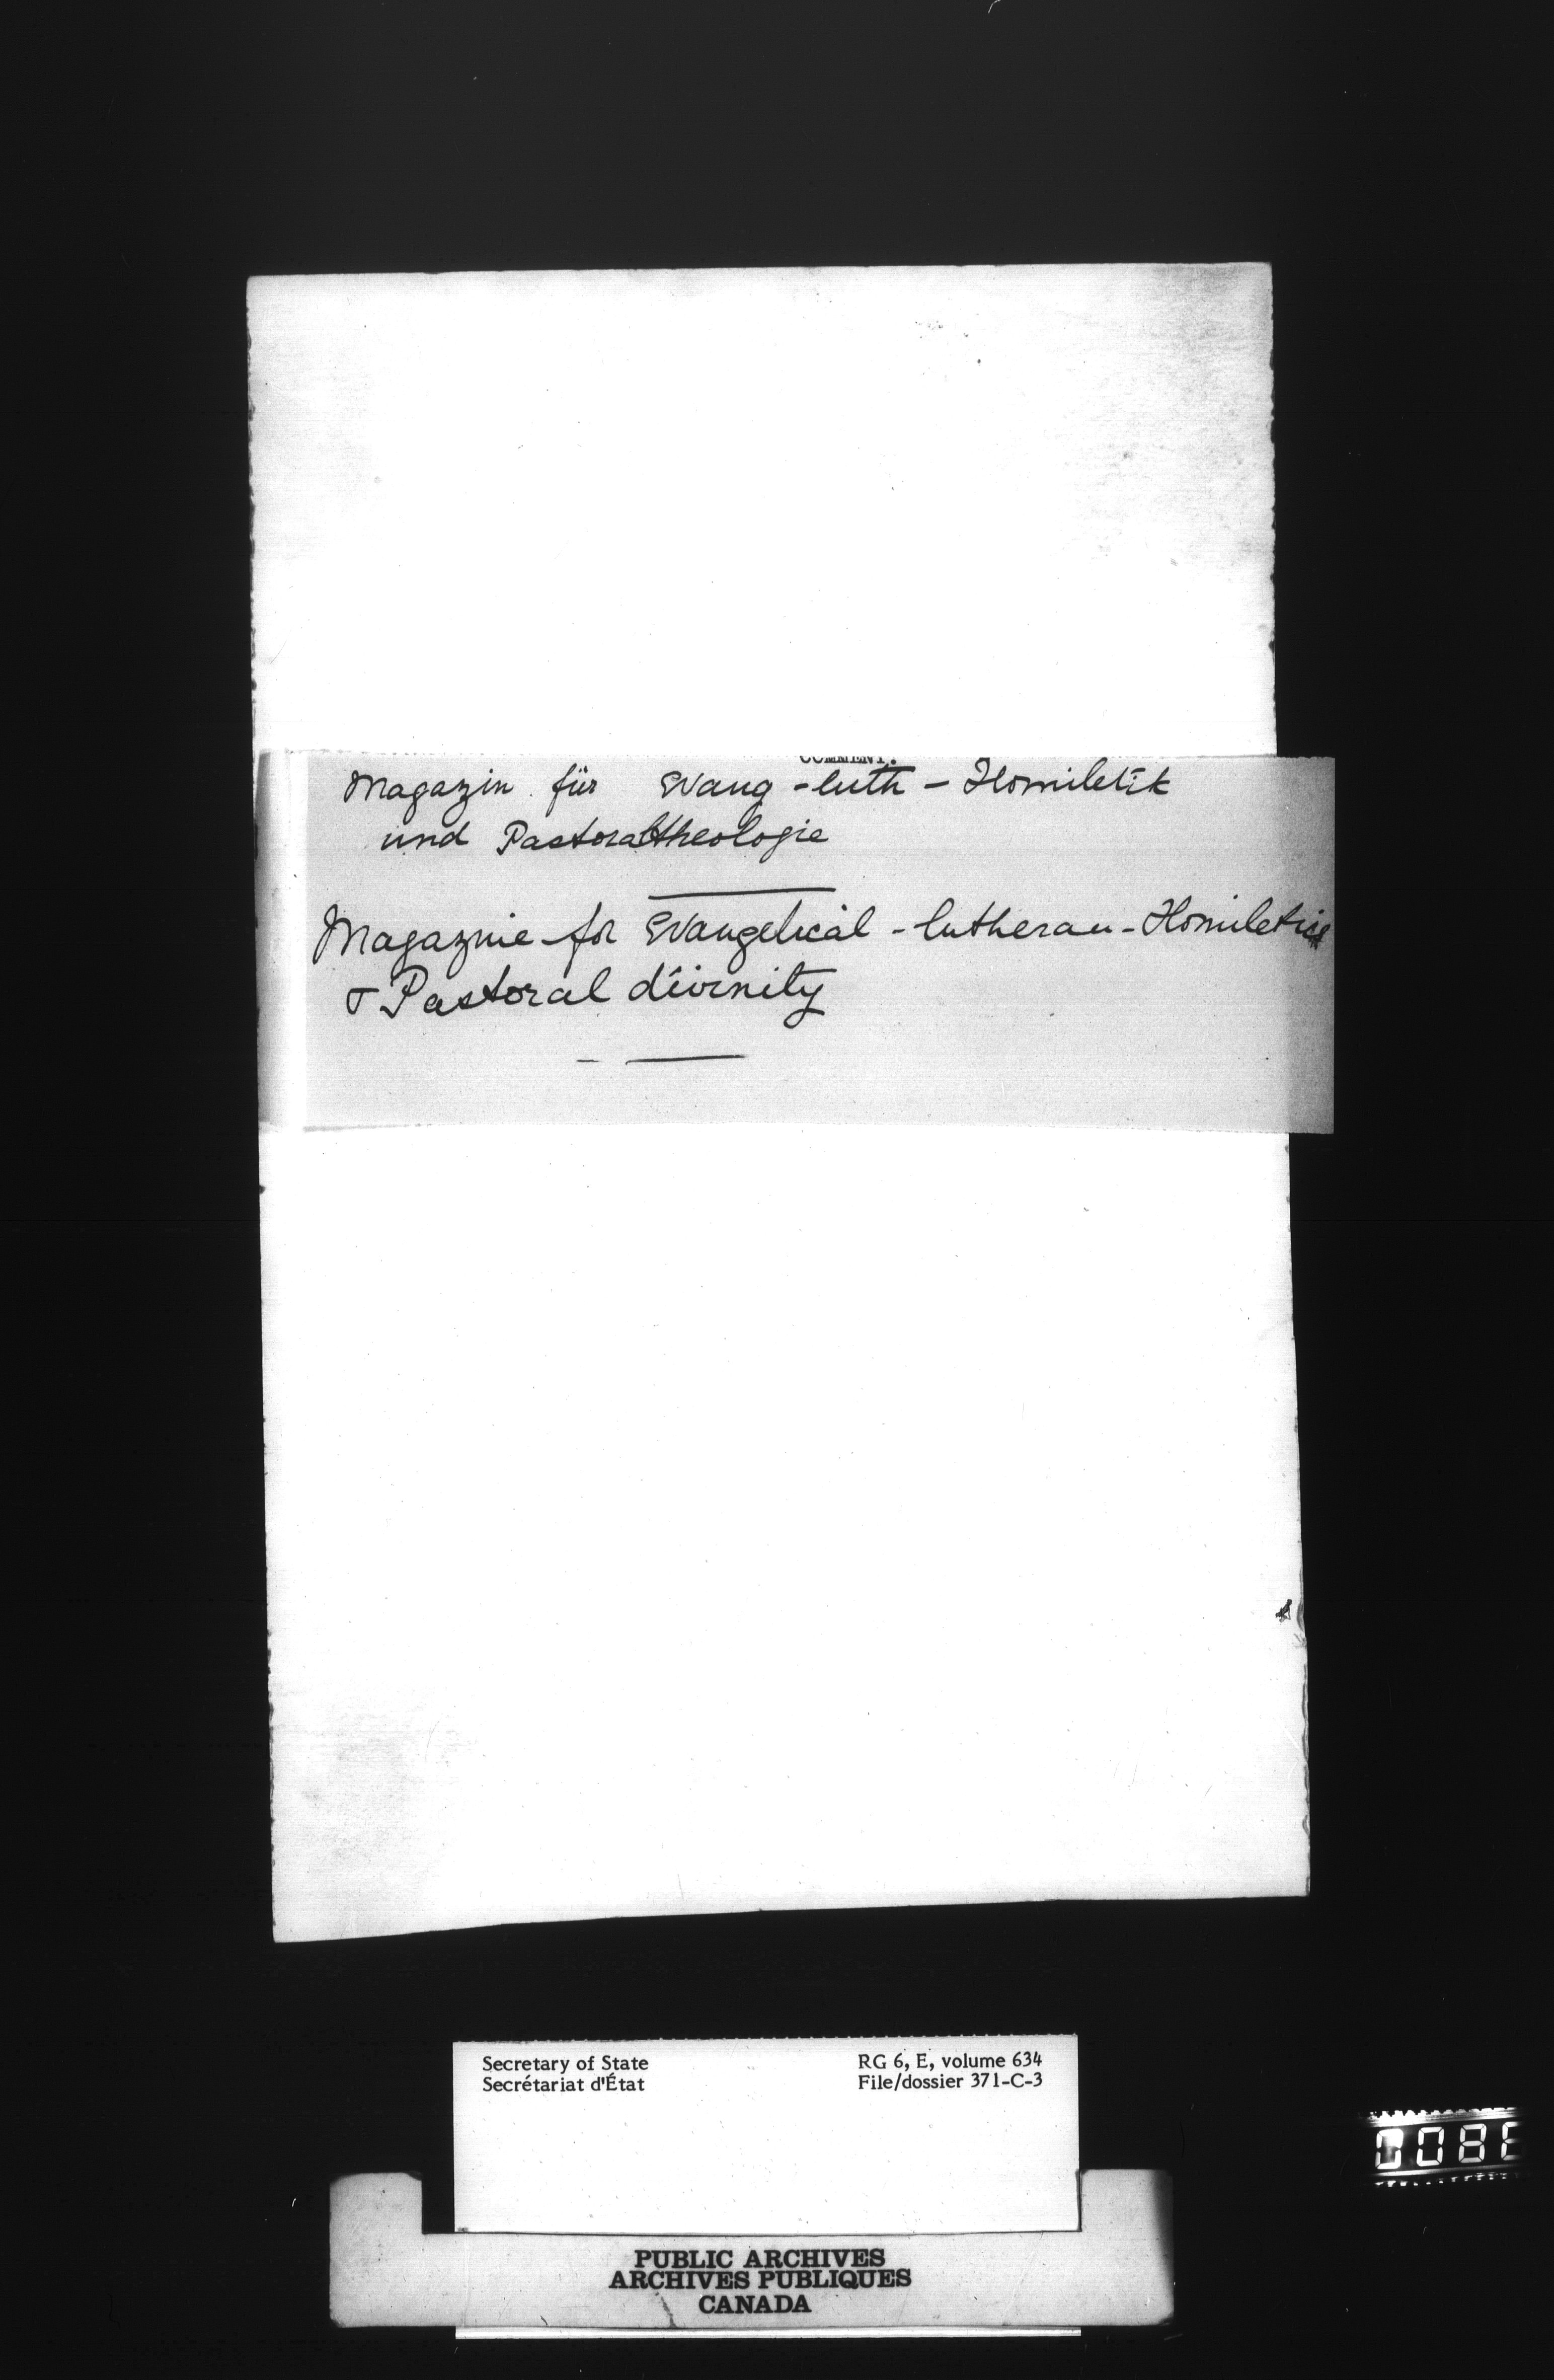 COMMENT.
Magazin für Evang - luth - Homiletik
und Pastoraltheologie
Magazine for Evangelical - lutheran - Homiletics
& Pastoral divinity
Secretary of State
Secrétariat d'État
RG 6, E, volume 634
File/dossier 371-C-3
PUBLIC ARCHIVES
ARCHIVES PUBLIQUES
CANADA